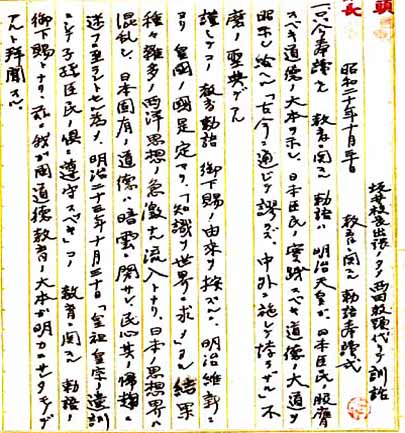 境野校長出張ノタメ西田教頭代ッテ訓話
昭和二十年十月三十日 教育ニ関スル勅語奉読式
只今奉読セル教育ニ関スル勅語ハ明治天皇ガ日本臣民ノ服膺
スベキ道徳ノ大本ヲ示シ、日本臣民ノ実践スベキ道徳ノ大道ヲ
昭示シ給ヘル「古今ニ通ジテ謬ラズ、中外ニ施シテ悖ラザル」不
磨ノ聖典デアル
謹シンデコノ教育勅語御下賜ノ由来ヲ按ズルニ、明治維新ニ
ヨリ皇国ノ国是定マリ、「知識ヲ世界ニ求メ」タル結果
種々雑多ノ西洋思想ノ急激ナル流入トナリ、日本ノ思想界ハ
混乱シ、日本固有ノ道徳ハ暗雲ニ閉サレ、民心其ノ帰趨ニ
迷フニ至ラントセシ為メ、明治二十三年十月三十日「皇祖皇宗ノ遺訓
ニシテ子孫臣民ノ倶ニ遵守スベキ」コノ教育ニ関スル勅語ノ
御下賜トナリ、茲ニ我ガ国道徳教育ノ大本ガ明カニサレタモノデ
アルト拝聞スル。